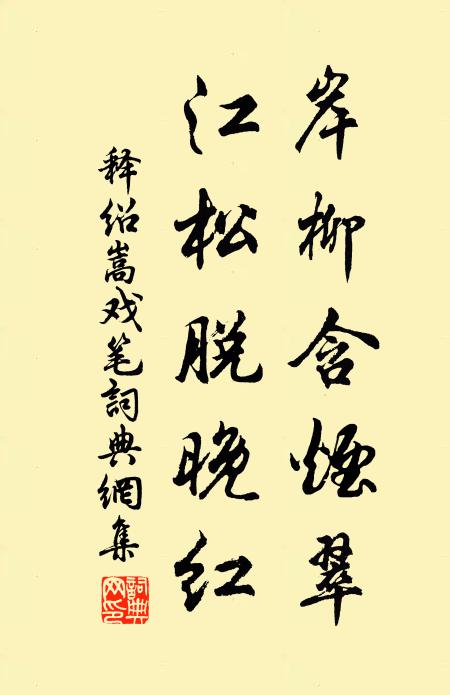 岸柳含烟翠
江松脱晚红
释绍嵩戏笔詞典網集
詞典网印